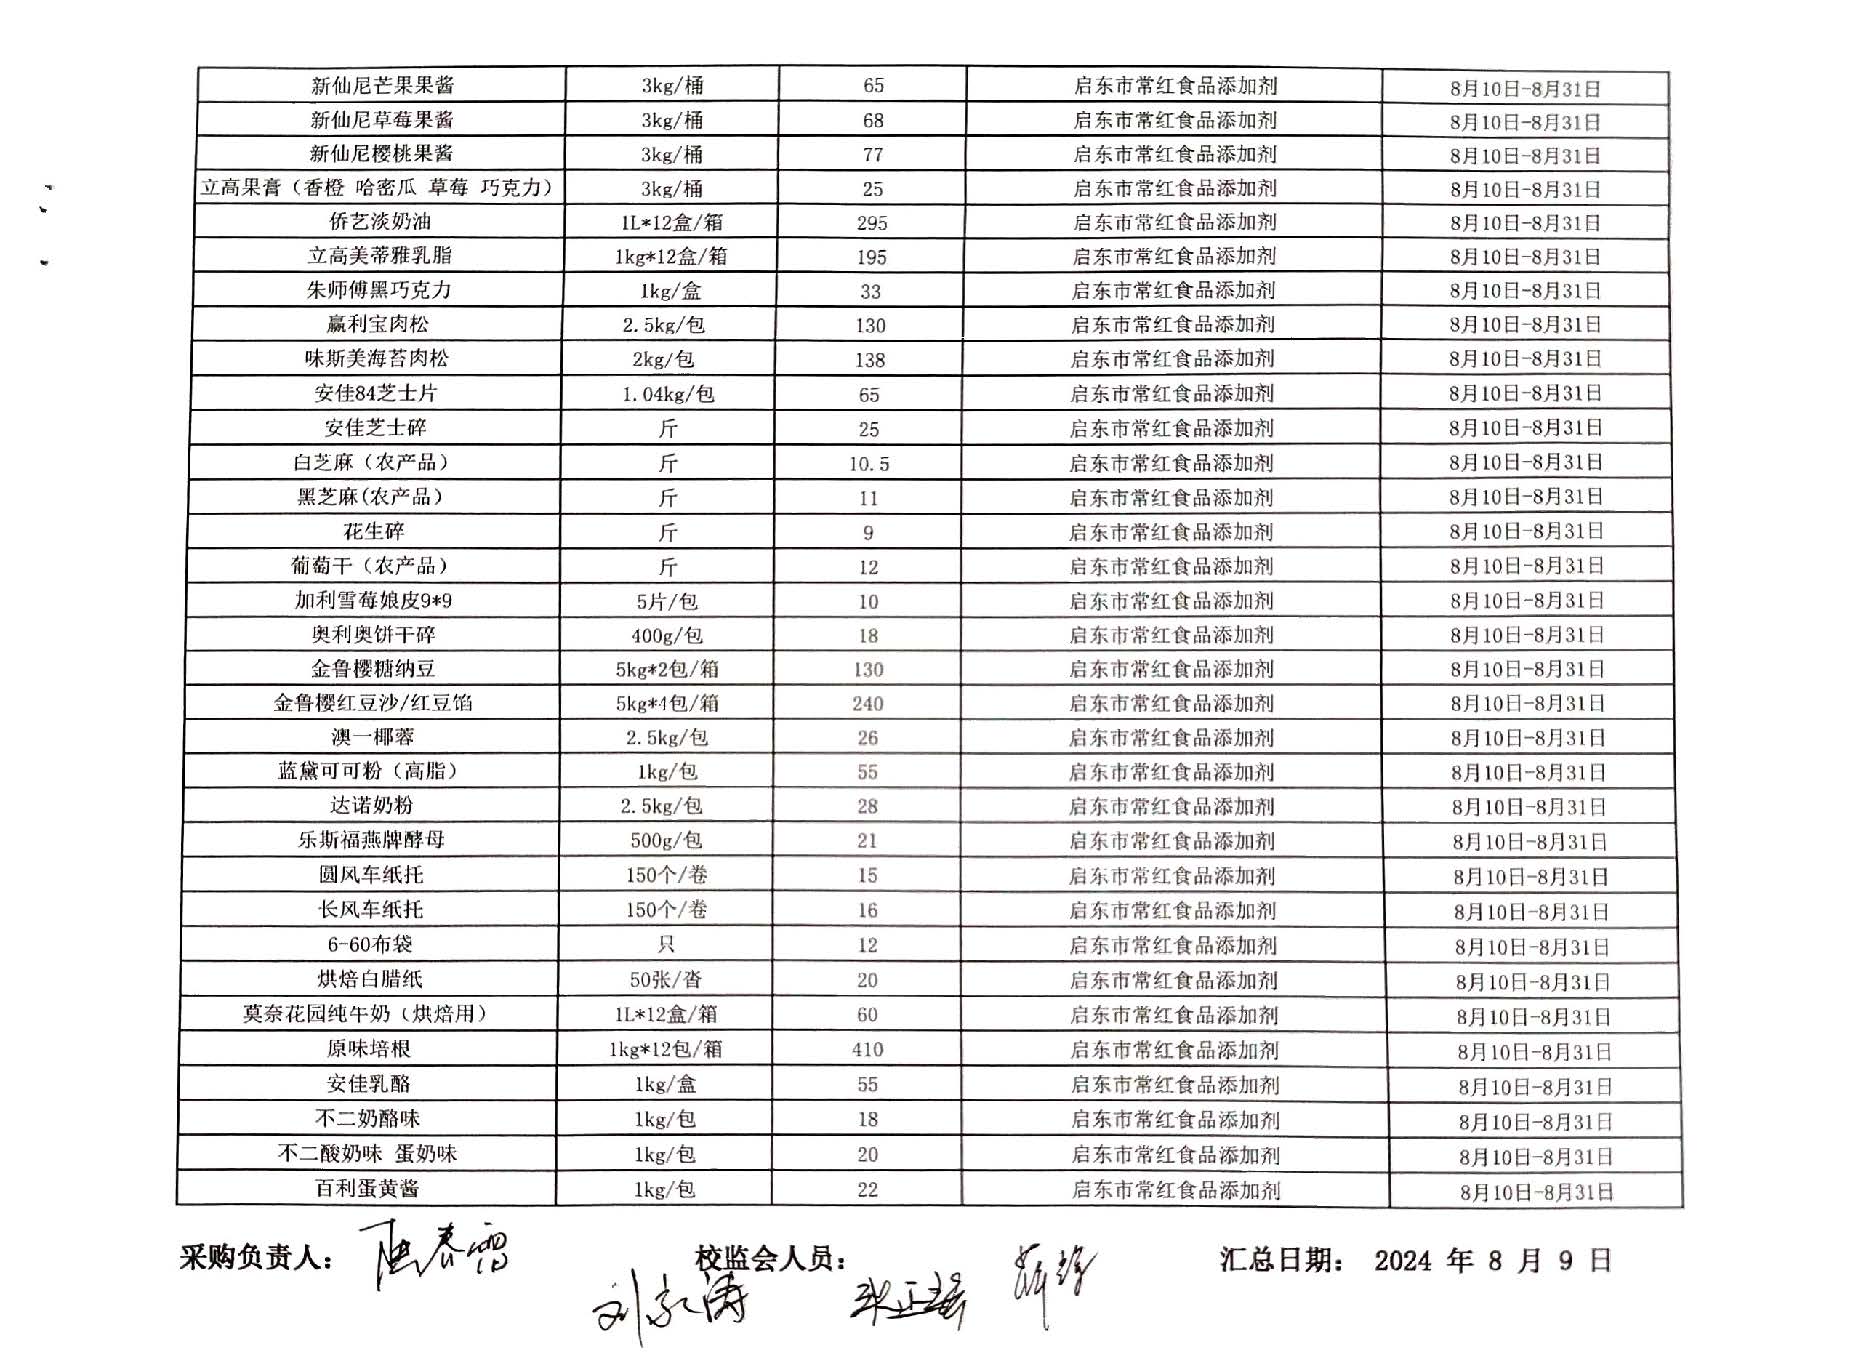 新仙尼芒果果酱 3kg/桶 65 启东市常红食品添加剂 8月10日-8月31日
新仙尼草莓果酱 3kg/桶 68 启东市常红食品添加剂 8月10日-8月31日
新仙尼樱桃果酱 3kg/桶 77 启东市常红食品添加剂 8月10日-8月31日
立高果膏（香橙 哈密瓜 草莓 巧克力） 3kg/桶 25 启东市常红食品添加剂 8月10日-8月31日
侨艺淡奶油 1L*12盒/箱 295 启东市常红食品添加剂 8月10日-8月31日
立高美蒂雅乳脂 1kg*12盒/箱 195 启东市常红食品添加剂 8月10日-8月31日
朱师傅黑巧克力 1kg/盒 33 启东市常红食品添加剂 8月10日-8月31日
赢利宝肉松 2.5kg/包 130 启东市常红食品添加剂 8月10日-8月31日
味斯美海苔肉松 2kg/包 138 启东市常红食品添加剂 8月10日-8月31日
安佳84芝士片 1.04kg/包 65 启东市常红食品添加剂 8月10日-8月31日
安佳芝士碎 斤 25 启东市常红食品添加剂 8月10日-8月31日
白芝麻（农产品） 斤 10.5 启东市常红食品添加剂 8月10日-8月31日
黑芝麻(农产品） 斤 11 启东市常红食品添加剂 8月10日-8月31日
花生碎 斤 9 启东市常红食品添加剂 8月10日-8月31日
葡萄干（农产品） 斤 12 启东市常红食品添加剂 8月10日-8月31日
加利雪莓娘皮9*9 5片/包 10 启东市常红食品添加剂 8月10日-8月31日
奥利奥饼干碎 400g/包 18 启东市常红食品添加剂 8月10日-8月31日
金鲁樱糖纳豆 5kg*2包/箱 130 启东市常红食品添加剂 8月10日-8月31日
金鲁樱红豆沙/红豆馅 5kg*4包/箱 240 启东市常红食品添加剂 8月10日-8月31日
澳一椰蓉 2.5kg/包 26 启东市常红食品添加剂 8月10日-8月31日
蓝黛可可粉（高脂） 1kg/包 55 启东市常红食品添加剂 8月10日-8月31日
达诺奶粉 2.5kg/包 28 启东市常红食品添加剂 8月10日-8月31日
乐斯福燕牌酵母 500g/包 21 启东市常红食品添加剂 8月10日-8月31日
圆风车纸托 150个/卷 15 启东市常红食品添加剂 8月10日-8月31日
长风车纸托 150个/卷 16 启东市常红食品添加剂 8月10日-8月31日
6-60布袋 只 12 启东市常红食品添加剂 8月10日-8月31日
烘焙白腊纸 50张/沓 20 启东市常红食品添加剂 8月10日-8月31日
莫奈花园纯牛奶（烘焙用） 1L*12盒/箱 60 启东市常红食品添加剂 8月10日-8月31日
原味培根 1kg*12包/箱 410 启东市常红食品添加剂 8月10日-8月31日
安佳乳酪 1kg/盒 55 启东市常红食品添加剂 8月10日-8月31日
不二奶酪味 1kg/包 18 启东市常红食品添加剂 8月10日-8月31日
不二酸奶味 蛋奶味 1kg/包 20 启东市常红食品添加剂 8月10日-8月31日
百利蛋黄酱 1kg/包 22 启东市常红食品添加剂 8月10日-8月31日
采购负责人： 校监会人员： 汇总日期： 2024 年 8 月 9 日